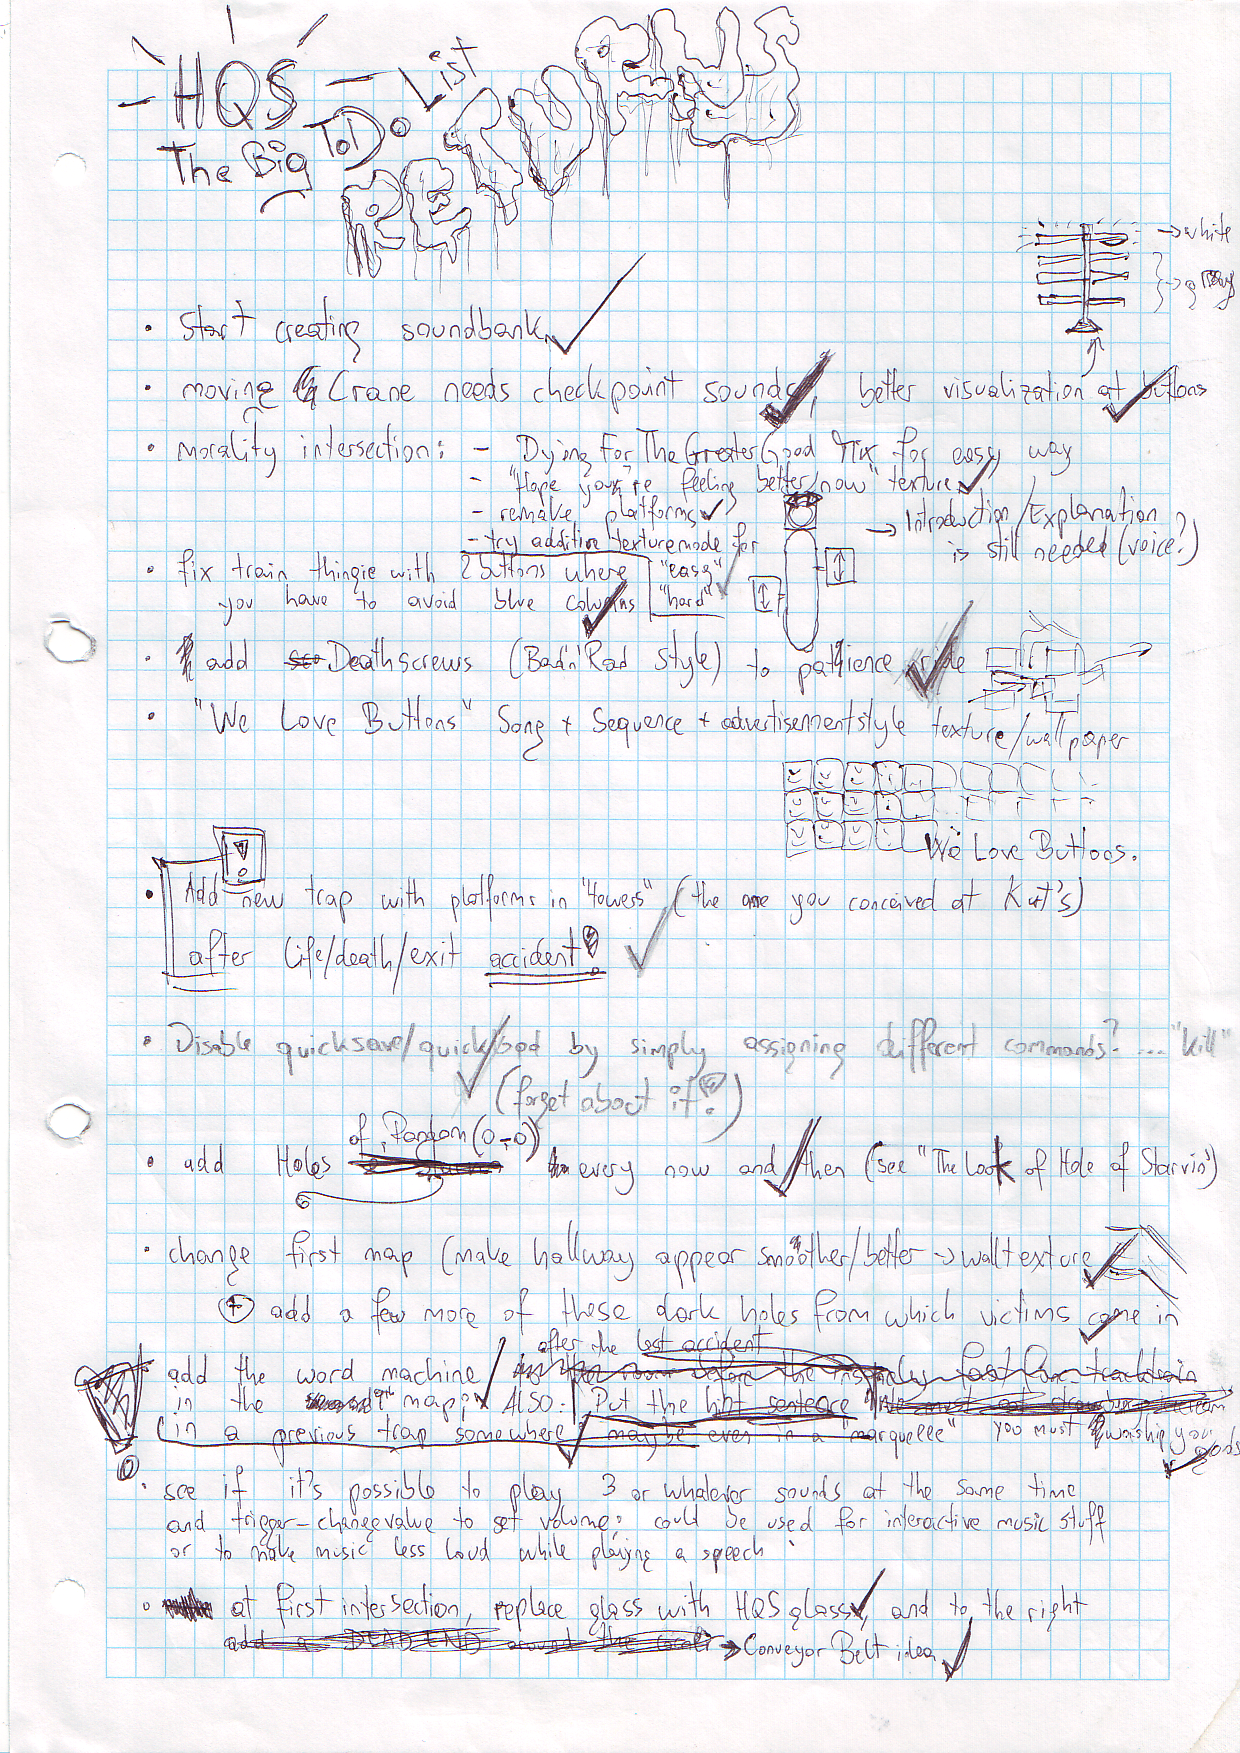 HQS
The Big ToDo List
RETURNS
→ white
→ gray
• Start creating soundbank
• moving Crane needs checkpoint sounds, better visualization at buttons
• morality intersection: - Dying For The Greater Good Mix for easy way
- "Hope you're feeling better now" texture
- remake platforms
→ Introduction/Explanation
is still needed (voice?)
- try additive texturemode for
"easy"
"hard"
• fix train thingie with 2 buttons where
you have to avoid blue columns
• add Deathscrews (Bad'n'Rad Style) to patience ride
• "We Love Buttons" Song + Sequence + advertisementstyle texture/wallpaper
We Love Buttons.
• Add new trap with platforms in "towers" (the one you conceived at Kurt's)
after life/death/exit accident!
• Disable quicksave/quickload by simply assigning different commands? ... "kill"
(forget about it!)
of Random (0-0)
• add Holes every now and then (see "The Look of Hole of Starvin')
• change first map (make hallway appear smoother/better → walltexture
+ add a few more of these dark holes from which victims come in
after the last accident
add the word machine
in the map; ALSO: Put the hint sentence
(in a previous trap somewhere, maybe even in a marquelle" you must worship your gods
• see if it's possible to play 3 or whatever sounds at the same time
and trigger-changevalue to set volume: could be used for interactive music stuff
or to make music less loud while playing a speech
• at first intersection, replace glass with HQS glass, and to the right
add a DEAD END around the corner → Conveyor Belt idea